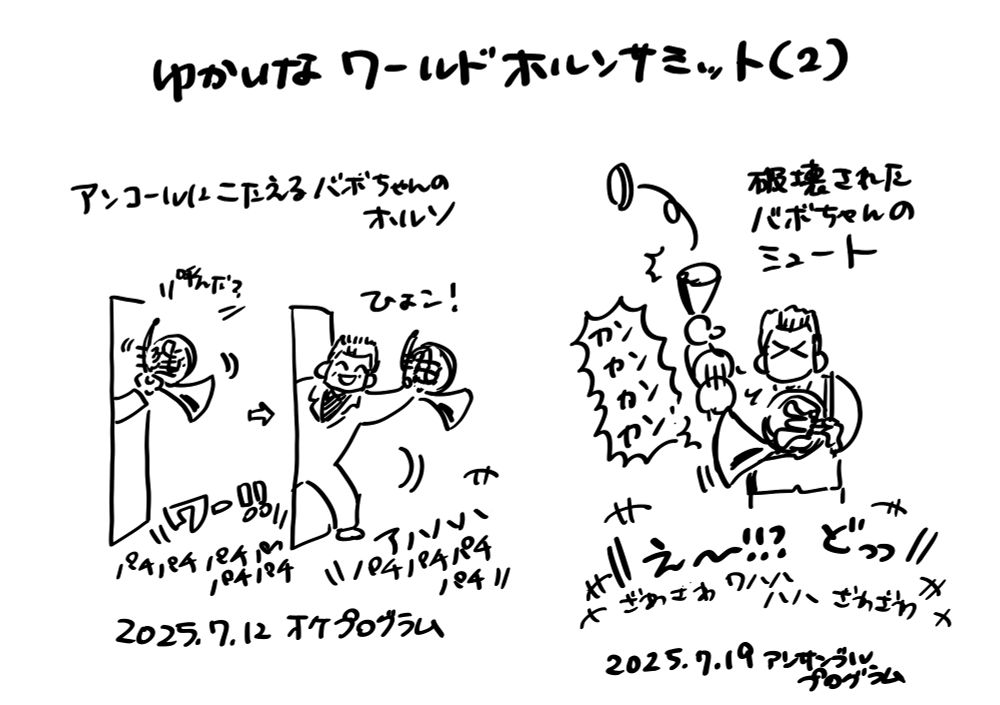 ゆかいな ワールドホルンサミット(2)
アンコールにこたえるバボちゃんの
ホルン
呼んだ?
ひょこ!
ワー!!
パチパチパチパチ
パチパチ
アハハハ
パチパチパチ
パチ
2025.7.12 オケプログラム
破壊された
バボちゃんの
ミュート
カン
カン
カン
カン!
え〜!!? どっっ
ざわざわ ワハハ
ハハ ざわざわ
2025.7.19 アンサンブル
プログラム